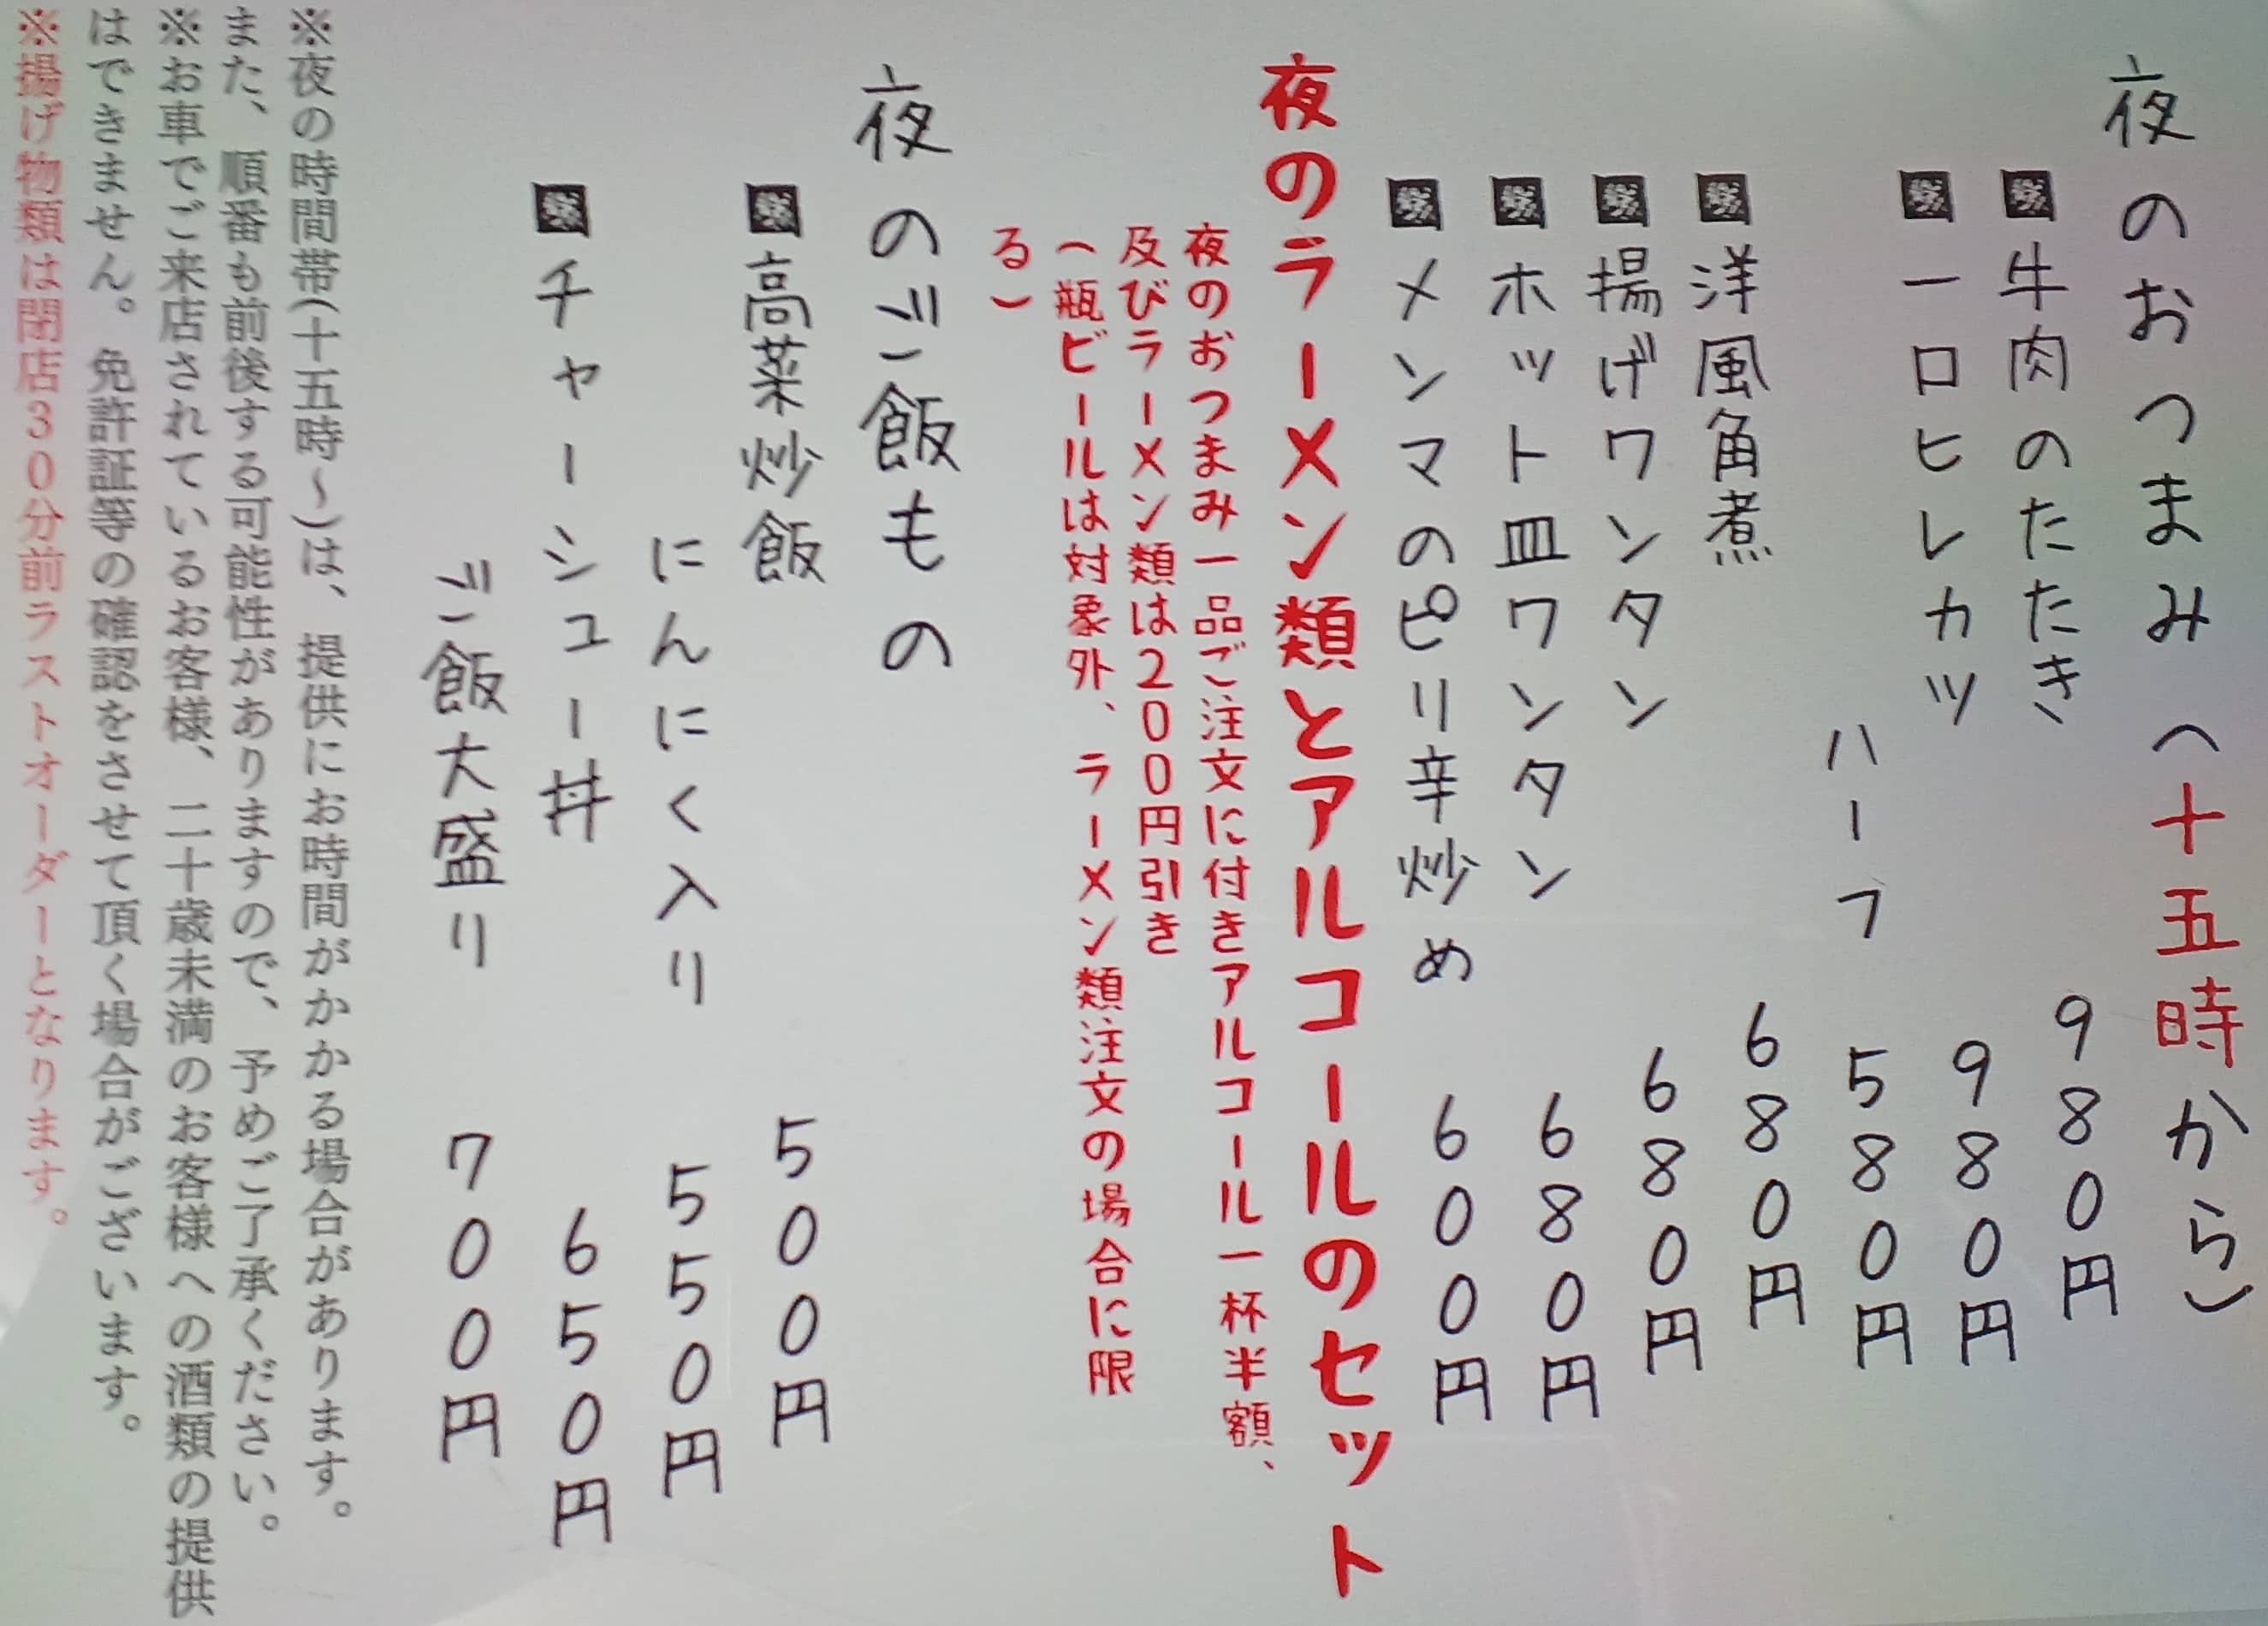 夜のおつまみ(十五時から)
牛肉のたたき 980円
一口ヒレカツ 980円
ハーフ 580円
洋風角煮 680円
揚げワンタン 680円
ホット皿ワンタン 680円
メンマのピリ辛炒め 600円
夜のラーメン類とアルコールのセット
夜のおつまみ一品ご注文に付きアルコール一杯半額、
及びラーメン類は200円引き
(瓶ビールは対象外、ラーメン類注文の場合に限
る)
夜のご飯もの
高菜炒飯 500円
にんにく入り 550円
チャーシュー丼 650円
ご飯大盛り 700円
※夜の時間帯(十五時~)は、提供にお時間がかかる場合があります。
また、順番も前後する可能性がありますので、予めご了承ください。
※お車でご来店されているお客様、二十歳未満のお客様への酒類の提供
はできません。免許証等の確認をさせて頂く場合がございます。
※揚げ物類は閉店30分前ラストオーダーとなります。